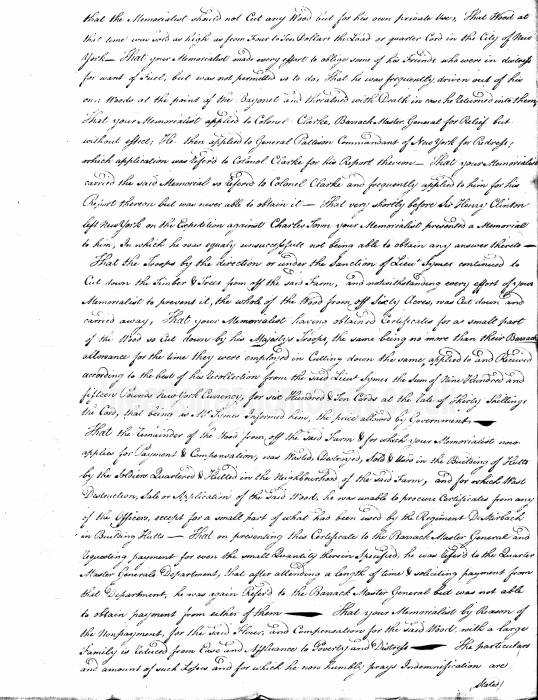 that the Memorialist should not Cut any Wood but for his own private Use, That Wood at
that time was sold as high as from Four to Ten Dollars the Load or quarter Cord in the City of New
York — That your Memorialist made every effort to oblige some of his Friends who were in distress
for want of Fuel, but was not permitted so to do, That he was frequently driven out of his
own Woods at the point of the Bayonet and threatned with Death in case he returned into them
That your Memorialist applied to Colonel Clarke, Barrack Master General for Relief but
without effect; He then applied to General Pattison Commandant of New York for Redress;
which application was Refer'd to Colonel Clarke for his Report thereon — That your Memorialist
carried the said Memorial so Refered to Colonel Clarke and frequently applied to him for his
Report thereon but was never able to obtain it — That very shortly before Sir Henry Clinton
left New York on the Expedition against Charles Town your Memorialist presented a Memorial
to him, in which he was equaly unsuccessfull not being able to obtain any answer thereto —
That the Troops by the direction or under the Sanction of Lieu.t Symes continued to
Cut down the Timber & Trees from off the said Farm, and notwithstanding every effort of your
Memorialist to prevent it, the whole of the Wood from off Sixty Acres, was Cut down and
carried away, That your Memorialist having obtained Certificates for a small part
of the Wood so Cut down by his Majestys Troops, the same being no more than their Barrack
allowance for the time they were employed in Cutting down the same, applied to and Received
according to the best of his recollection from the said Lieut Symes the Sum of Nine Hundred and
fifteen Pounds New York Currency, for six Hundred & Ten Cords at the rate of Thirty Shillings
the Cord, that being as Mr Simes Informed him, the price allowed by Government. —
That the Remainder of the Wood from off the said Farm & for which your Memorialist now
applies for Payment & Compensation, was Wasted, Destroyed, Sold & Used in the Building of Hutts
by the Soldiers Quartered & Hutted in the Neighbourhood of the said Farm, and for which Wast
Destruction, Sale or Application of the said Wood, he was unable to procure Certificates from any
of the Officers, except for a small part of what had been used by the Regiment De Mirbach
in Building Hutts — That on presenting this Certificate to the Barrack Master General and
requesting payment for even the small Quantity therein Specified, he was Refer'd to the Quarter
Master Generals Department, that after attending a length of time & soliciting payment from
that Department, he was again Refer'd to the Barrack Master General but was not able
to obtain payment from either of them — That your Memorialist by Reason of
the Nonpayment, for the said and Compensation for the said Wood with a large
Family is reduced from Ease and Affluance to Poverty and Distress — The particulars
and amount of such Losses and for which he now humbly prays Indemnification are
Stated